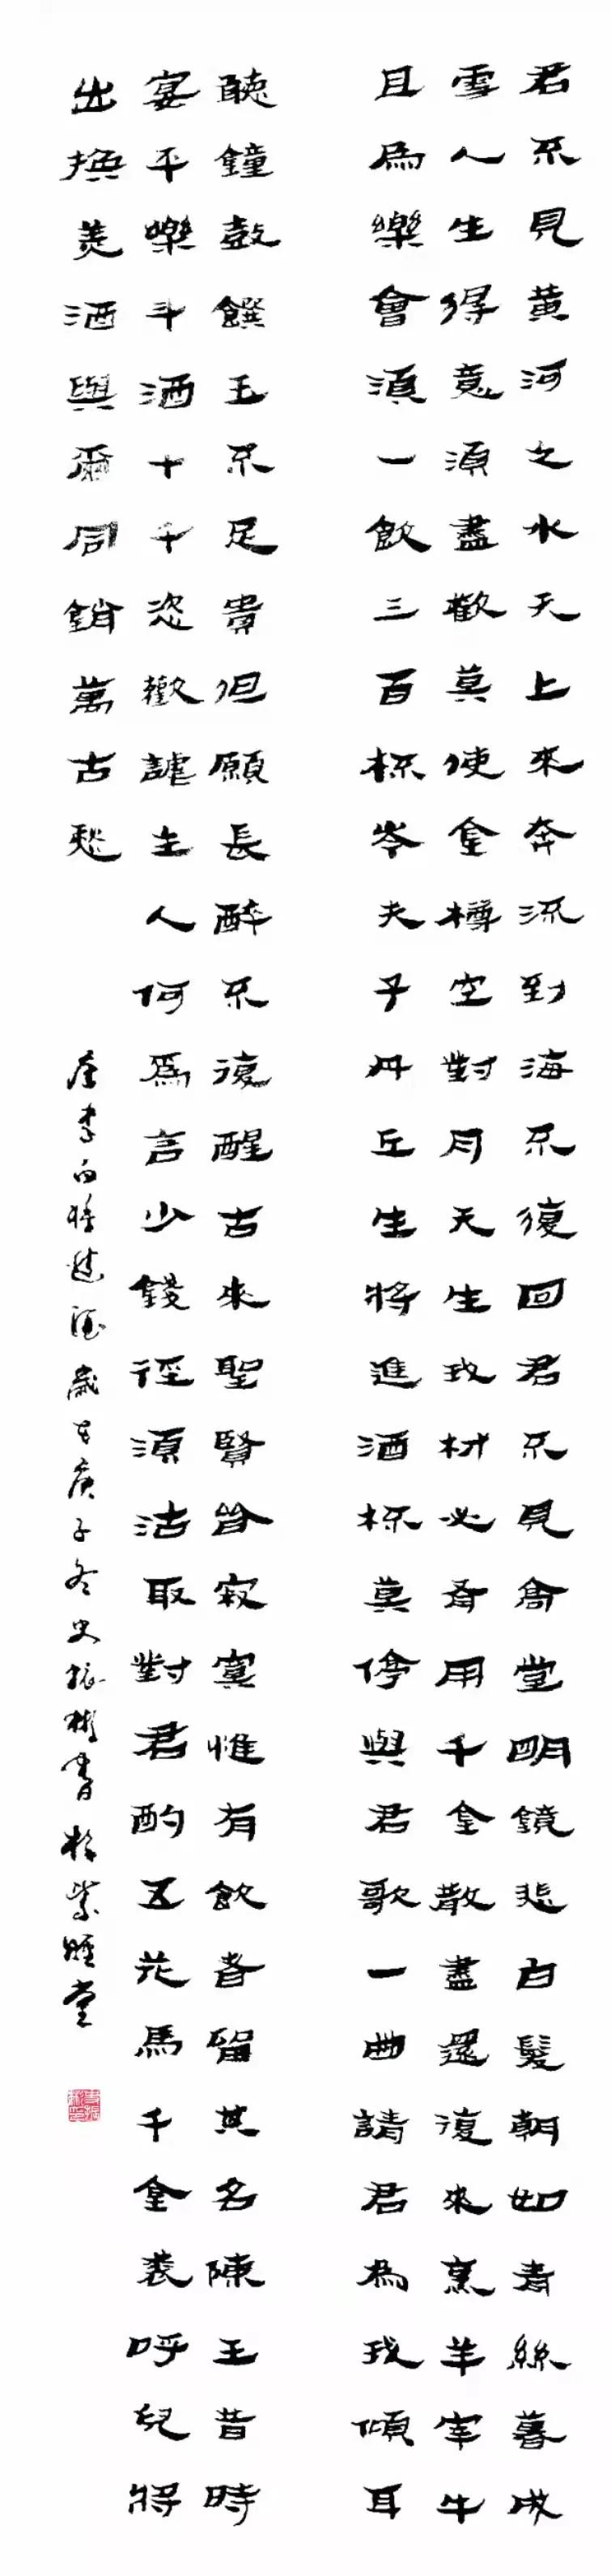 君不見黃河之水天上來奔流到海不復回君不見高堂明鏡悲白髮朝如青絲暮成
雪人生得意須盡歡莫使金樽空對月天生我材必有用千金散盡還復來烹羊宰牛
且爲樂會須一飲三百杯岑夫子丹丘生將進酒杯莫停與君歌一曲請君為我傾耳
聽鐘鼓饌玉不足貴但願長醉不復醒古來聖賢皆寂寞惟有飲者留其名陳王昔時
宴平樂斗酒十千恣歡謔主人何爲言少錢徑須沽取對君酌五花馬千金裘呼兒將
出換美酒與爾同銷萬古愁
唐李白將進酒歲在庚子冬史振彬書於紫堂